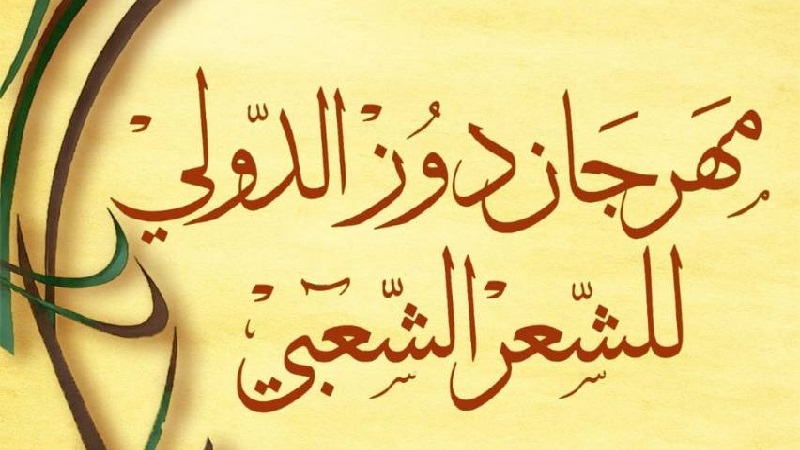 مهرجان دوز الدولي
للشعر الشعبي